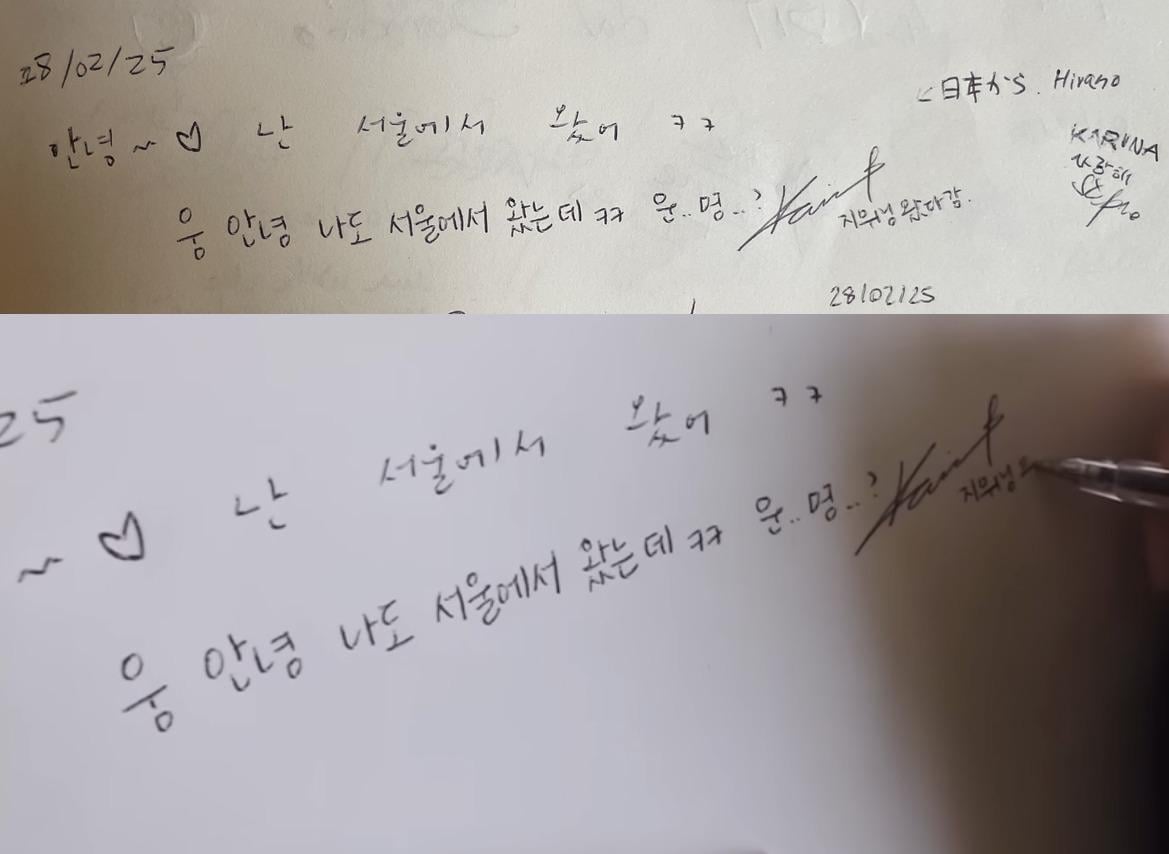 28/02/25
← 日本から. Hirano
안녕~ ♡ 난 서울에서 왔어 ㅋㅋ
KARINA
사랑해
웅 안녕 나도 서울에서 왔는데 ㅋㅋ 운..명..?
지워닝 왔다감.
28/02/25
25
~ ♡ 난 서울에서 왔어 ㅋㅋ
웅 안녕 나도 서울에서 왔는데 ㅋㅋ 운..명..?
지워닝